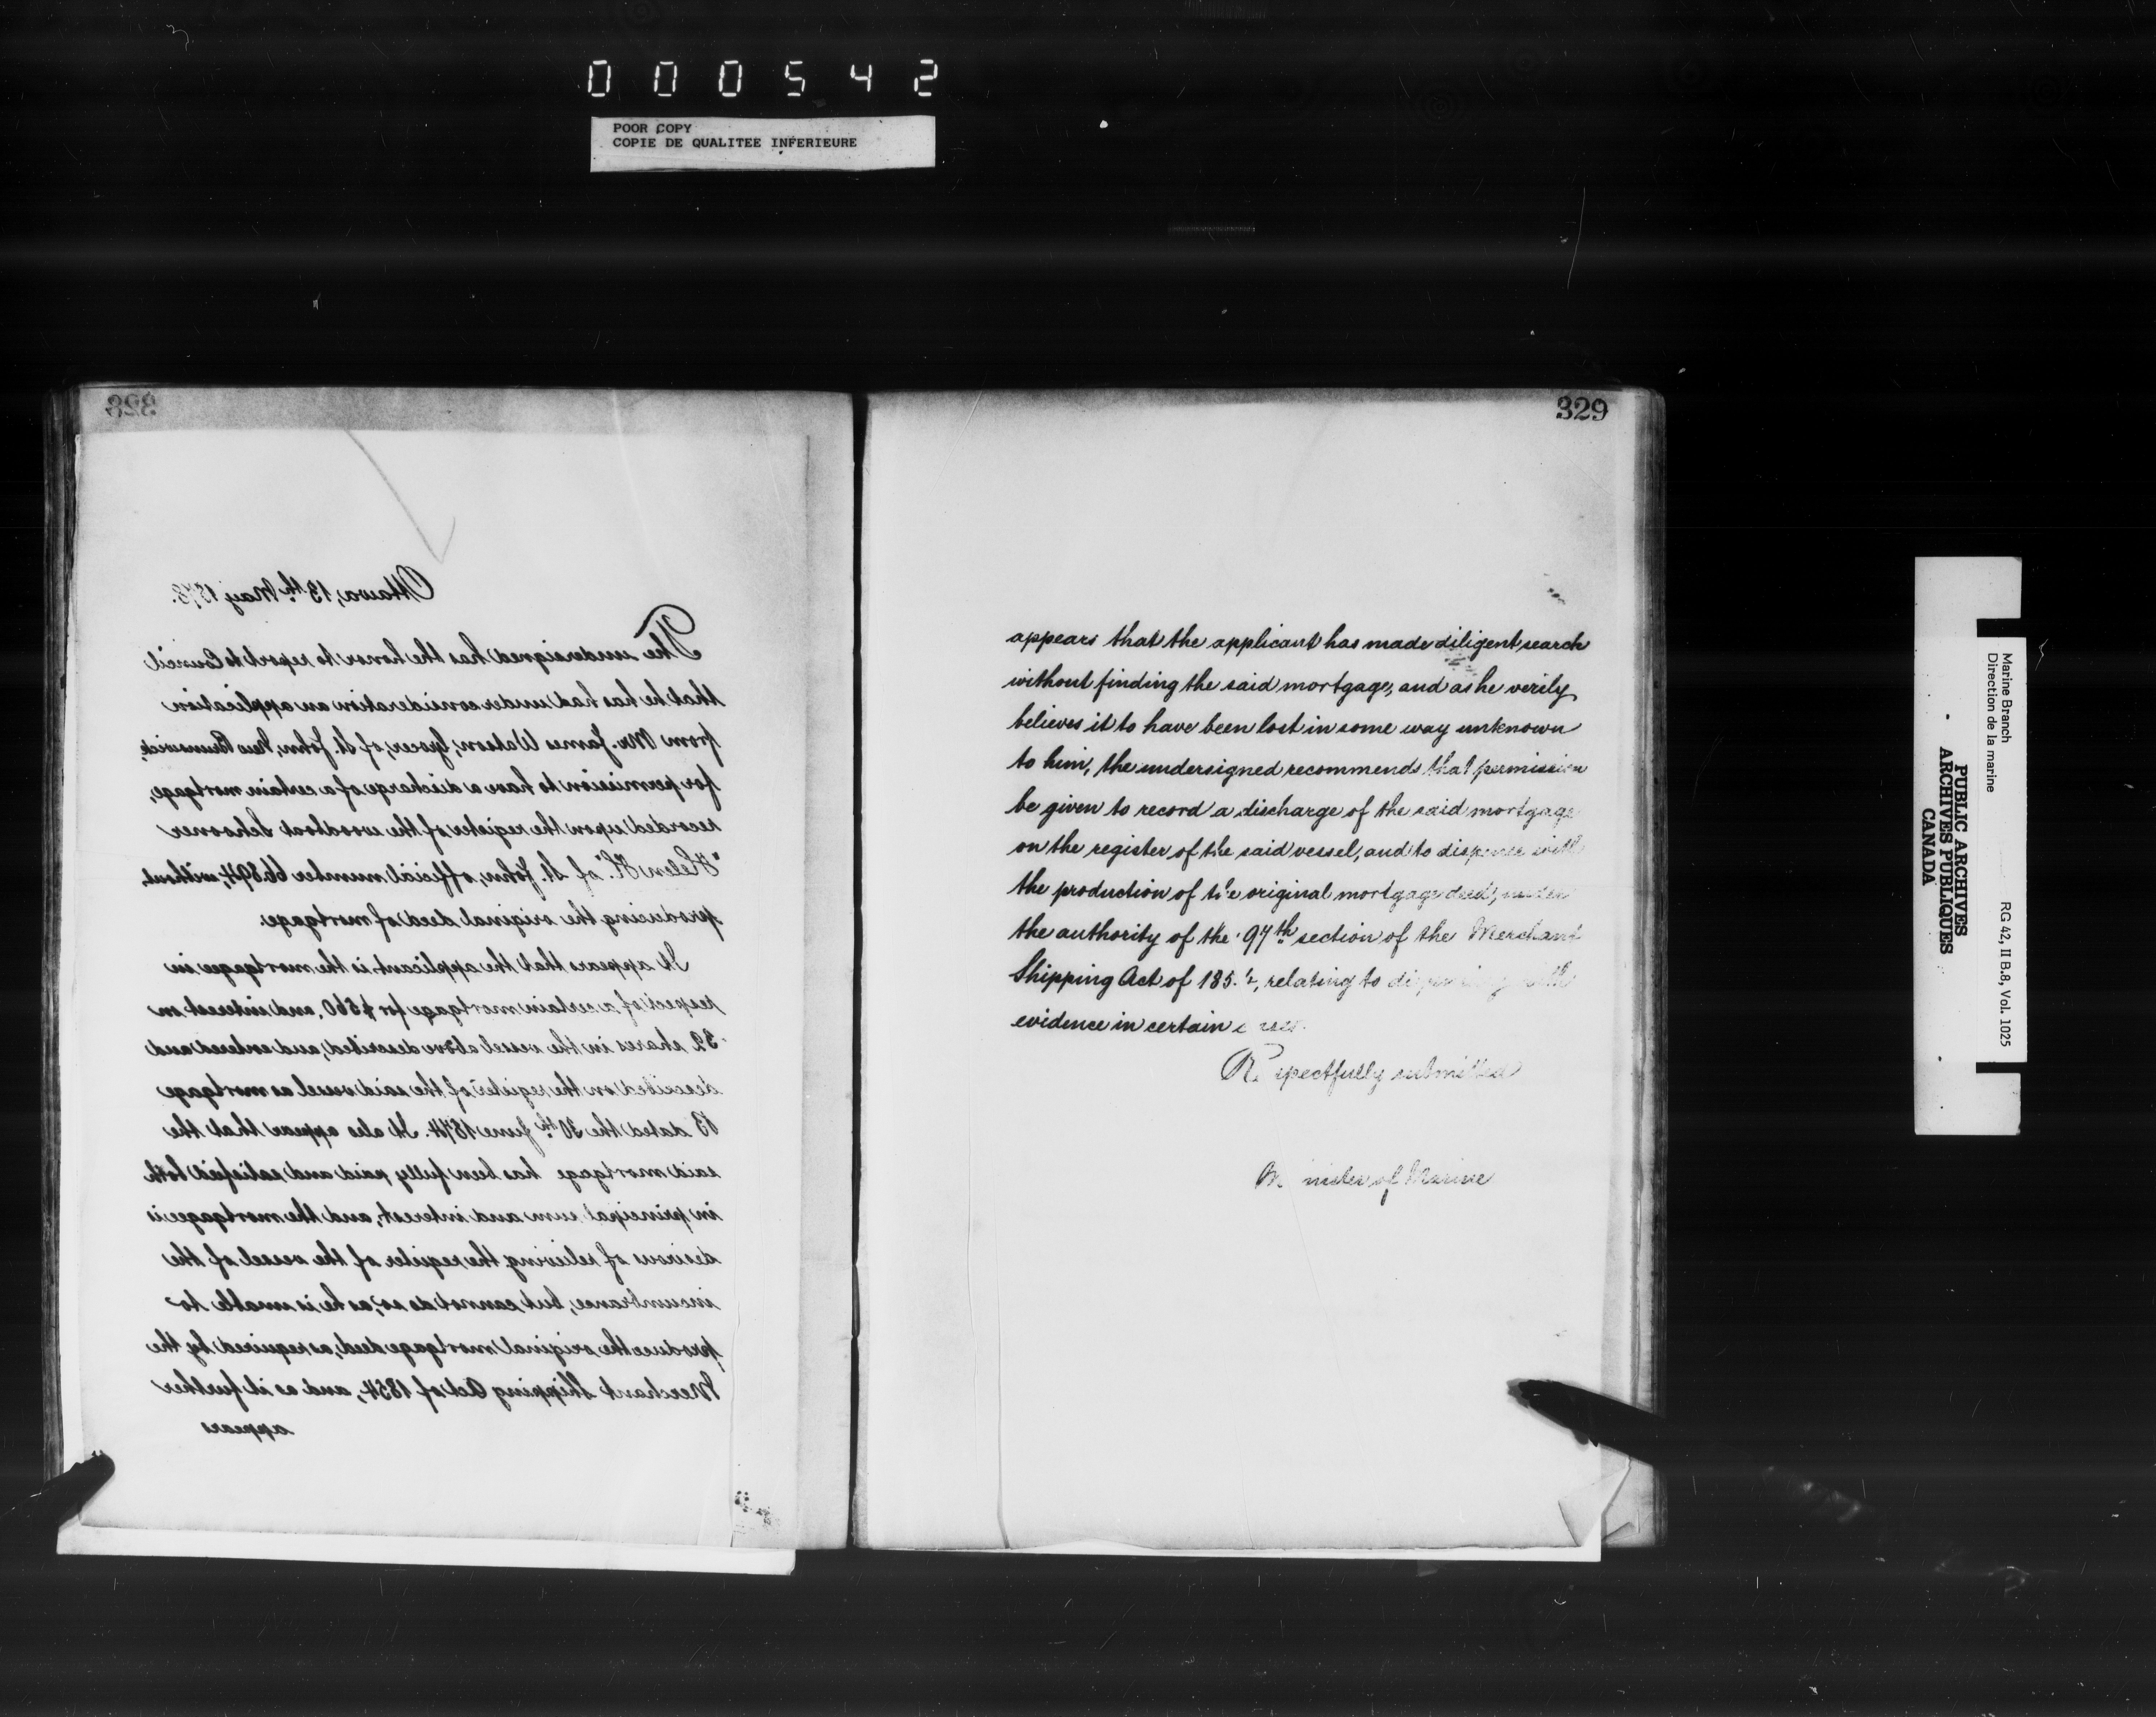 000542
POOR COPY
COPIE DE QUALITEE INFERIEURE
328
Ottawa, 13th May 1878.
The undersigned has the honor to report to Council
that he has had under consideration an application
from Mr. James Watson, Grocer, of St. John, New Brunswick,
for permission to have a discharge of a certain mortgage,
recorded upon the register of the woodboat Schooner
"Helen K." of St. John, official number 66.894, without
producing the original deed of mortgage.
It appears that the applicant is the mortgagee in
respect of a certain mortgage for $560. and interest on
32 shares in the vessel above described, and entered and
described on the register of the said vessel as mortgage
B dated the 30th June 1874. It also appears that the
said mortgage has been fully paid and satisfied both
in principal sum and interest, and the mortgagee is
desirous of relieving the register of the vessel of the
incumbrance, but cannot do so, as he is unable to
produce the original mortgage deed, as required by the
Merchant Shipping Act of 1854, and as it further
appears
329
appears that the applicant has made diligent search
without finding the said mortgage, and as he verily
believes it to have been lost in some way unknown
to him, the undersigned recommends that permission
be given to record a discharge of the said mortgage
on the register of the said vessel, and to dispense with
the production of the original mortgage deed, under
the authority of the 97th section of the Merchant
Shipping Act of 1854, relating to dispensing with
evidence in certain cases.
Respectfully submitted
Minister of Marine
Marine Branch
Direction de la marine
RG 42, II B.8, Vol. 1025
PUBLIC ARCHIVES
ARCHIVES PUBLIQUES
CANADA